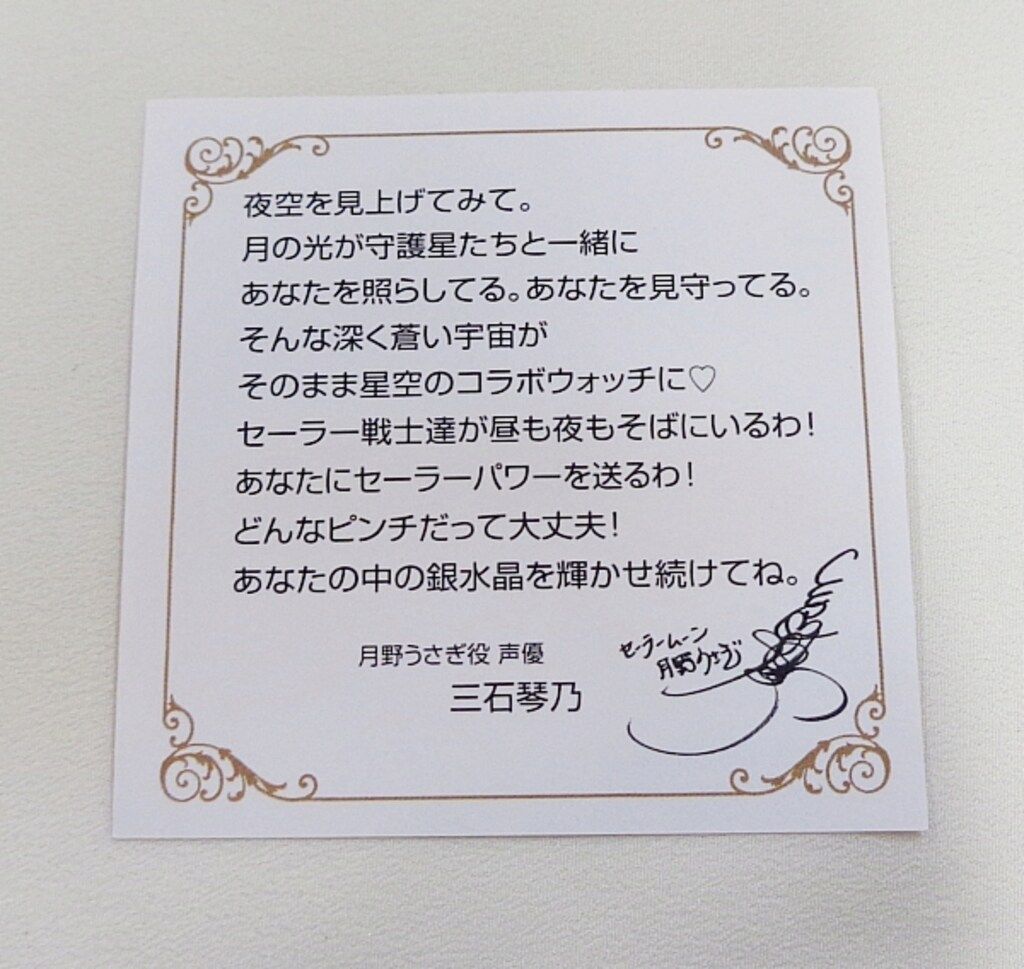 夜空を見上げてみて。
月の光が守護星たちと一緒に
あなたを照らしてる。あなたを見守ってる。
そんな深く蒼い宇宙が
そのまま星空のコラボウォッチに♡
セーラー戦士達が昼も夜もそばにいるわ!
あなたにセーラーパワーを送るわ!
どんなピンチだって大丈夫!
あなたの中の銀水晶を輝かせ続けてね。
月野うさぎ役 声優
三石琴乃
セーラームーン
月野うさぎ